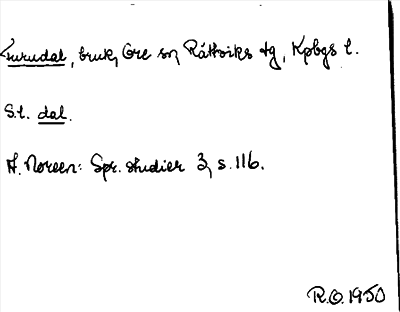 Lurudal, bruk, Ore sn, Rättviks tg, Kpbgs l.
S.t. dal.
A. Noreen: Spr. studier 3, s. 116.
R.O. 1950